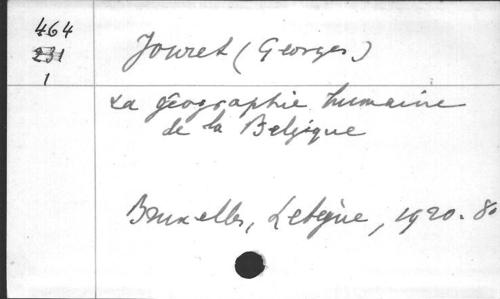 464
231
1
Jouret (Georges)
La géographie humaine
de la Belgique
Bruxelles, Lebègue, 1920. 8o